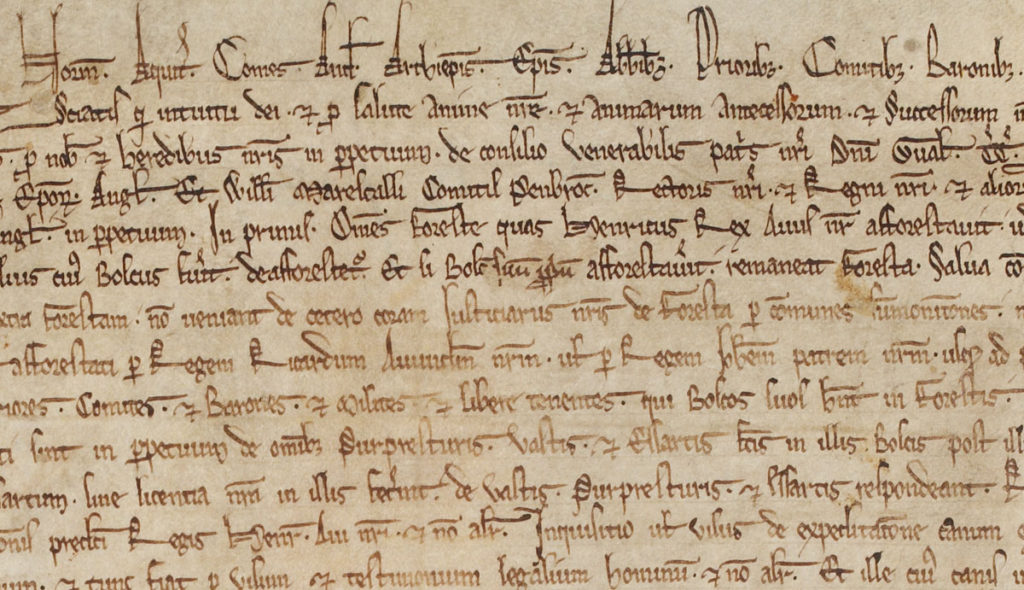 Norm̃. Aquit̃. Comes And̃. Archiep̃is. Ep̃is. Abbib;. Priorib;. Comitib;. Baronib;.
Sciatis qd̃ intuitu dei. ⁊ p̱ salute anime nr̃e. ⁊ animarum antecessorum. ⁊ Successorum
p̱ nob̃. ⁊ heredibus nr̃is in p̱petuum. de consilio venerabilis patˢ nr̃i Dñi Gual̃.
Ep̃or̃. Angl̃. Et Will̃i Marescalli Comitis Penbroc̃. Rectoris nr̃i. ⁊ Regni nr̃i. ⁊ alior
Angl̃. in p̱petuum. In primis. Om̃es Foreste quas Henricus Rex Auus nr̃ afforestauit.
cuiˢ Boscus fuit̃. deafforestet̃. Et si Bosc̃ suũ p̱p̱ũ afforestauit̃. remaneat Foresta. Salua
Forestam. nõ veniant de cetero coram Justiciariis nr̃is de Foresta p̱ cõmunes sũmonitiones.
afforestati p̱ Regem Ricardum Auunclm̃ nr̃m. ul̃ p̱ Regem Joh̃em patrem nr̃m. usq; ad
Comites. ⁊ Barones. ⁊ Milites ⁊ libere tenentes. qui Boscos suos hñt in Forestis.
sunt in p̱petuum de om̃ib; Purpresturis. Vastis. ⁊ Essartis fc̃is in illis Boscis post
sartum. sine licentia nr̃a in illis fecˢint. de Vastis. Purpresturis. ⁊ Essartis respondeant.
predc̃i Regis Henr̃. Aui nr̃i. ⁊ nõ alr̃. Inquisitio ul̃ visus de expeditatione canum
⁊ tunc fiat p̱ visum ⁊ testimonium legalium hominũ. ⁊ nõ alr̃. Et ille cuiˢ canis